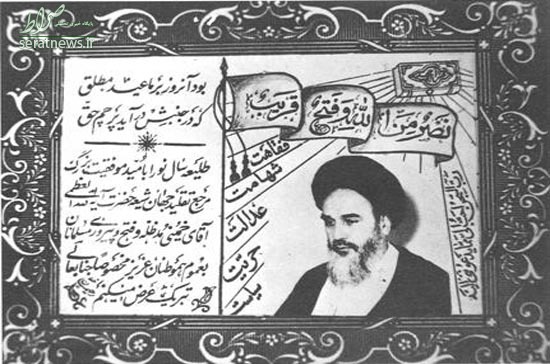 صراط
seratnews.ir
بود آنروز بر ما عید مطلق
که در جنبش در آید پرچم حق
طلیعه سال نو را بامید موفقیت بزرگ
مرجع تقلید جهان شیعه حضرت آیة الله العظمی
آقای خمینی مد ظله و فتح و پیروزی مسلمانان
بعموم هموطنان عزیز مخصوصا
تبریک عرض میکنم
نصر من الله و فتح قریب
فقاهت
شهامت
عدالت
سیاست